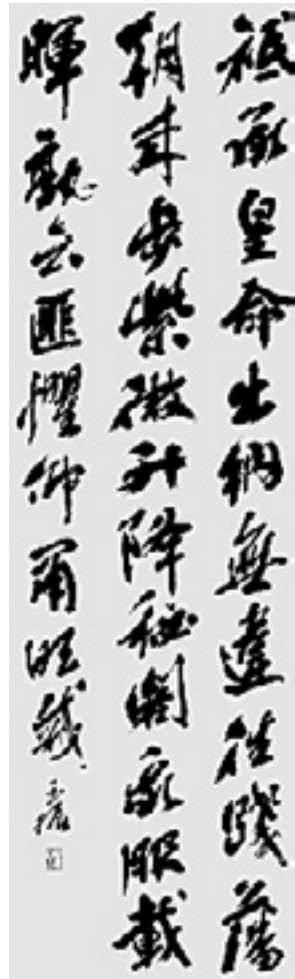 祗承皇命出納無違往踐藩
朝来步紫微升降秘閣我服載
暉孰云匪懼仰肅明威